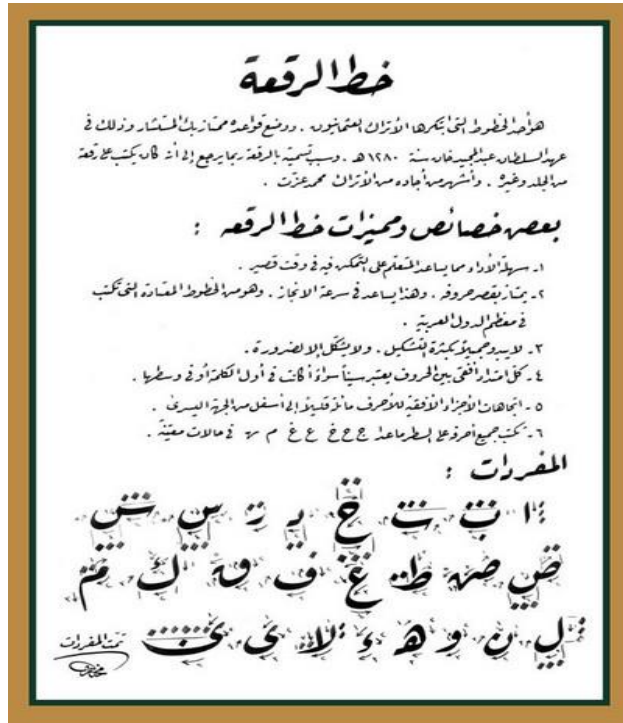 خط الرقعة
هو أحد الخطوط التي ابتكرها الأتراك العثمانيون . ووضع قواعده ممتاز بك المستشار وذلك في
عهد السلطان عبد المجيد خان سنة ١٢٨٠ هـ . وسبب تسميته بالرقعة ربما يرجع إلى أنه كان يكتب على رقعة
من الجلد وغيره . وأشهر من أجاده من الأتراك محمد عزت .
بعض خصائص ومميزات خط الرقعه :
١- سهلة الأداء مما يساعد المتعلم على التمكن فيه في وقت قصير .
٢- يمتاز بقصر حروفه . وهذا يساعد في سرعة الانجاز . وهو من الخطوط المعتادة التي تكتب
في معظم الدول العربية .
٣- لا يبدو جميلاً بكثرة التشكيل . ولا يشكّل إلا لضرورة .
٤- كل امتداد أفقي بين الحروف يعتبر سيناً سواءً أكانت في أول الكلمة أو في وسطها .
٥- اتجاهات الأجزاء الأفقية للأحرف مائلة قليلاً إلى أسفل من الجهة اليسرى .
٦- تكتب جميع أحرفه على السطر ما عدا ج ح خ ع غ م هـ في حالات معينة .
المفردات :
ا ب ت ج د ر س ش
ض ص ط غ ف ق ك م
ل ن و هـ ء لا ى ئ
تمت المفردات